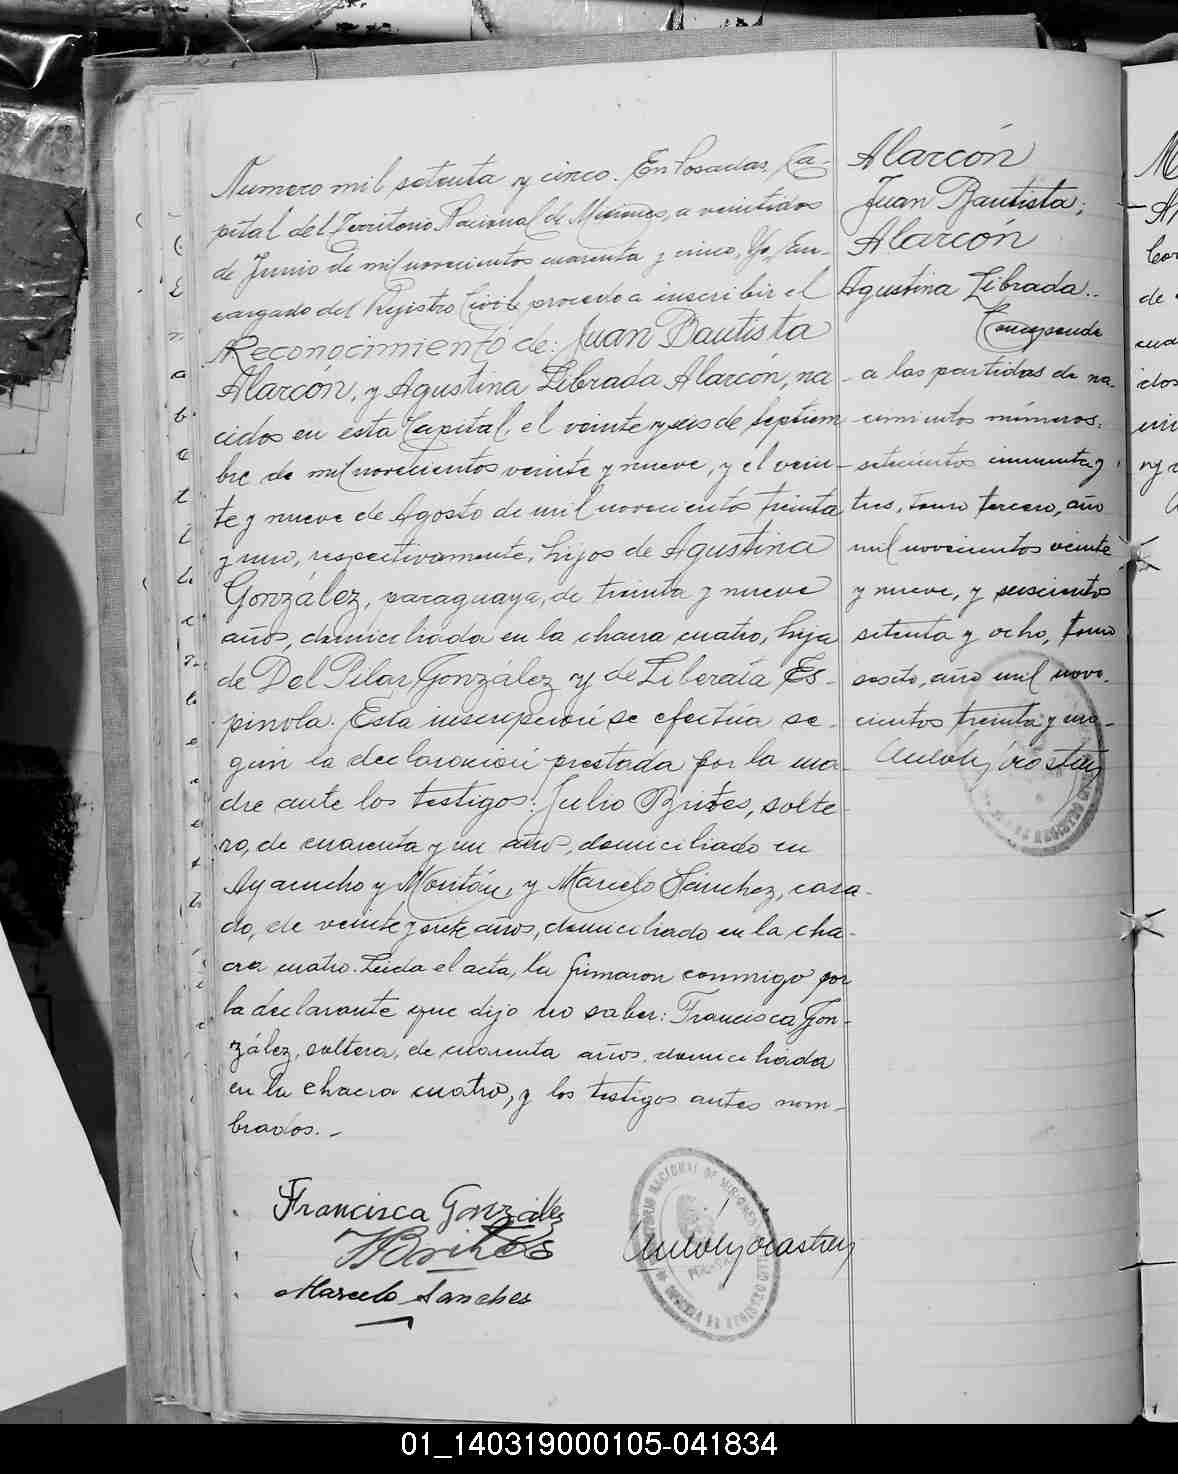 Numero mil setenta y cinco. En Posadas, Ca-
pital del Territorio Nacional de Misiones, a veintidos
de Junio de mil novecientos cuarenta y cinco, Yo, En-
cargado del Registro Civil, procedo a inscribir el
Reconocimiento de: Juan Bautista
Alarcón, y Agustina Librada Alarcón, na-
cidos en esta Capital, el veinte y seis de Septiem
bre de mil novecientos veinte y nueve, y el vein-
te y nueve de Agosto de mil novecientos treinta
y uno, respectivamente, hijos de Agustina
González, paraguaya, de treinta y nueve
años, domiciliada en la chacra cuatro, hija
de Del Pilar González y de Liberata Es-
pinola. Esta inscripción se efectúa se-
gún la declaración prestada por la ma-
dre ante los testigos: Julio Brites, solte-
ro, de cuarenta y un años, domiciliado en
Ayacucho y y Marcelo Sánchez, casa-
do, de veinte y siete años, domiciliado en la cha-
cra cuatro. Leida el acta, la firmaron conmigo por
la declarante que dijo no saber: Francisca Gon-
zález, soltera, de cuarenta años, domiciliada
en la chacra cuatro, y los testigos antes nom-
brados.-
Francisca González
Brites
Marcelo Sanches
Alarcón
Juan Bautista;
Alarcón
Agustina Librada..
Corresponde
a las partidas de na-
cimientos números:
setecientos cincuenta y
tres, tomo tercero, año
mil novecientos veinte
y nueve, y seiscientos
setenta y ocho, tomo
sexto, año mil nove-
cientos treinta y uno-
01_140319000105-041834